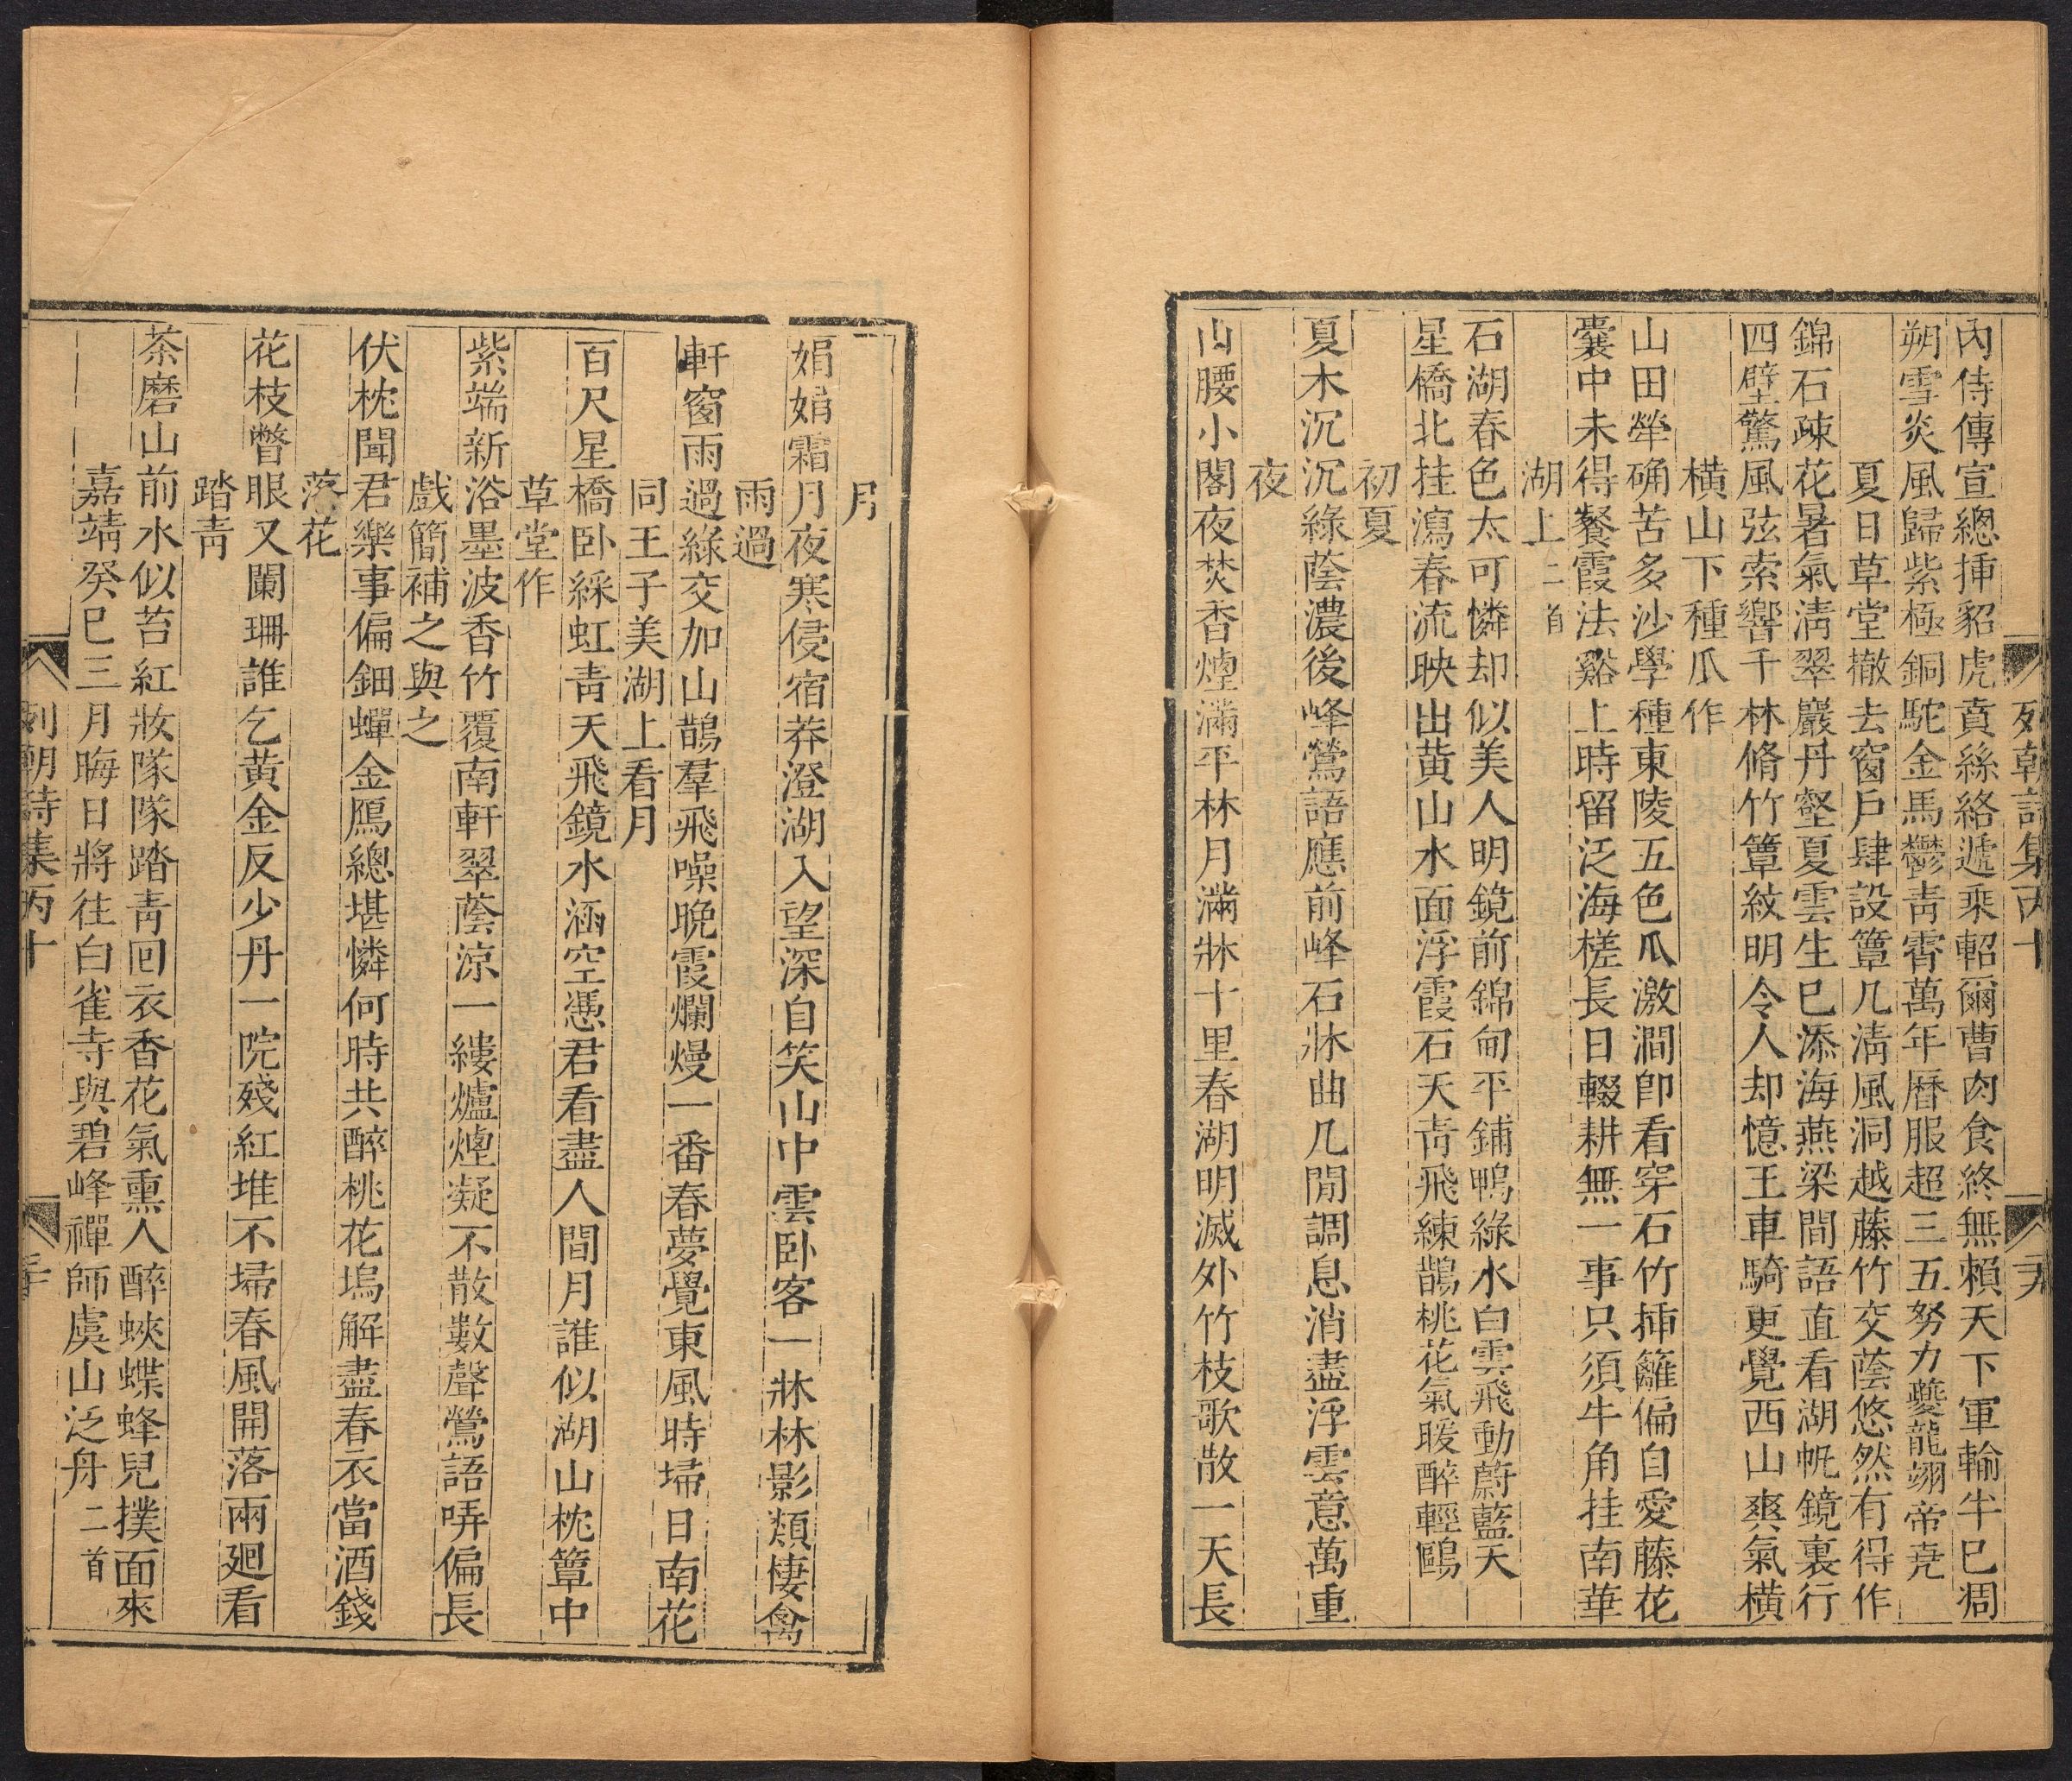 列朝詩集丙十
內侍傳宣總揷貂虎賁絲絡遞乘軺爾曹肉食終無賴天下軍輸半已凋
朔雪炎風歸紫極銅駝金馬鬱靑霄萬年曆服超三五努力夔龍翊帝堯
夏日草堂撤去窗戶肆設簟几淸風洞越藤竹交蔭悠然有得作
錦石疎花暑氣淸翠巖丹壑夏雲生巳添海燕梁間語直看湖帆鏡裏行
四壁驚風弦索響千林脩竹簟紋明令人却憶王車騎更覺西山爽氣橫
橫山下種瓜作
山田犖确苦多沙學種東陵五色瓜激澗卽看穿石竹揷籬偏自愛藤花
囊中未得餐霞法谿上時留泛海槎長日輟耕無一事只須牛角挂南華
湖上二首
石湖春色太可憐却似美人明鏡前錦甸平鋪鴨綠水白雲飛動蔚藍天
星橋北挂瀉春流映出黃山水面浮霞石天靑飛練鵲桃花氣暖醉輕鷗
初夏
夏木沉沉綠蔭濃後峰鶯語應前峰石牀曲几閒調息消盡浮雲意萬重
夜
山腰小閣夜焚香煙滿平林月滿牀十里春湖明滅外竹枝歌散一天長
月
娟娟霜月夜寒侵宿莽澄湖入望深自笑山中雲卧客一牀林影類棲禽
雨過
軒窗雨過綠交加山鵲羣飛噪晚霞爛熳一番春夢覺東風時埽日南花
同王子美湖上看月
百尺星橋卧綵虹靑天飛鏡水涵空憑君看盡人間月誰似湖山枕簟中
草堂作
紫端新浴墨波香竹覆南軒翠蔭涼一縷爐煙凝不散數聲鶯語哢偏長
戲簡補之與之
伏枕聞君樂事偏鈿蟬金鴈總堪憐何時共醉桃花塢解盡春衣當酒錢
落花
花枝瞥眼又闌珊誰乞黃金反少丹一院殘紅堆不埽春風開落兩廻看
踏靑
茶磨山前水似苔紅妝隊隊踏靑回衣香花氣熏人醉蛺蝶蜂兒撲面來
嘉靖癸巳三月晦日將往白雀寺與碧峰禪師虞山泛舟二首
列朝詩集丙十